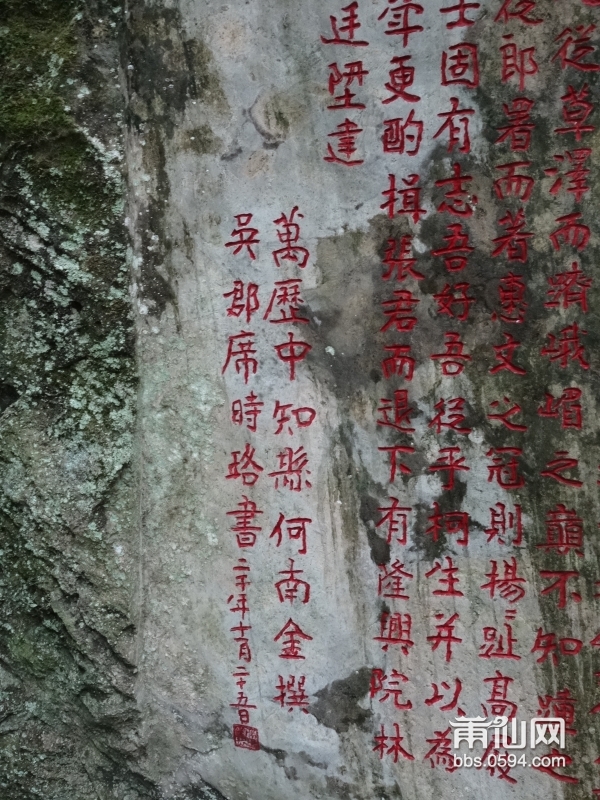 從草澤而濟峨嵋之巔不知蹟之
從郎署而著惠文之冠則揚二趾高
士固有志吾好吾從乎柯生并以為
更酌揖張君而退下有隆興院林
廷陞建
萬歷中知縣何南金撰
吳郡席時珞書二〇年十月二十五日
莆仙网
bbs.0594.com